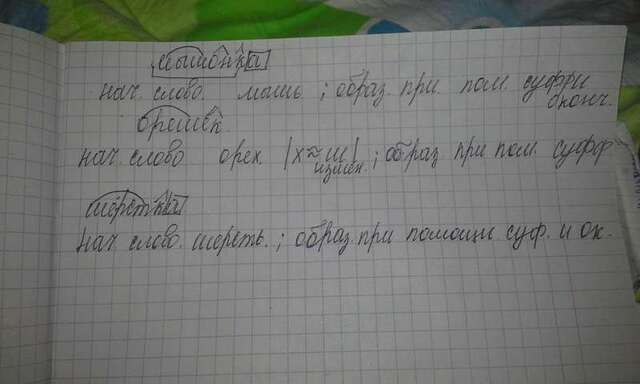 мышонка
нач. слово мышь ; образ. при пом. суффи
оконч.
орешек.
нач. слово орех |х≈ш| ; образ при пом. суфф
измен.
шерстка
нач. слово. шерсть. ; образ. при помощи суф. и ок.